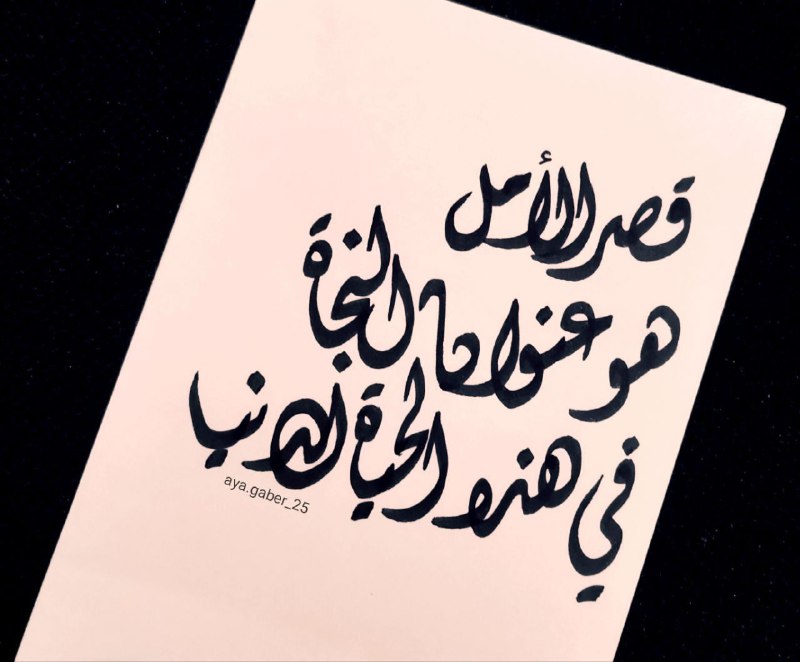 قصر الأمل
هو عنوان النجاة
في هذه الحياة الدنيا
aya.gaber_25